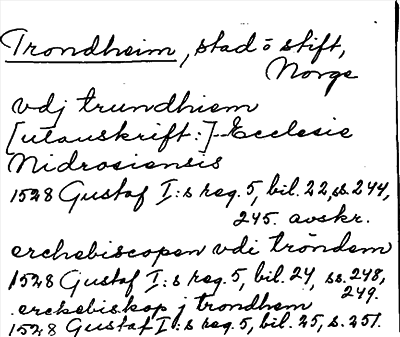 Trondheim, stad o stift,
Norge
vdj trundhiem
[utanskrift:] Ecclesie
Nidrosiensis
1528 Gustaf I:s reg. 5, bil. 22, ss. 244,
245. avskr.
erchebiscopen vdi tröndem
1528 Gustaf I:s reg. 5, bil. 24, ss. 248,
249.
erckebiskop j trondhem
1528 Gustaf I:s reg. 5, bil. 25, s. 251.